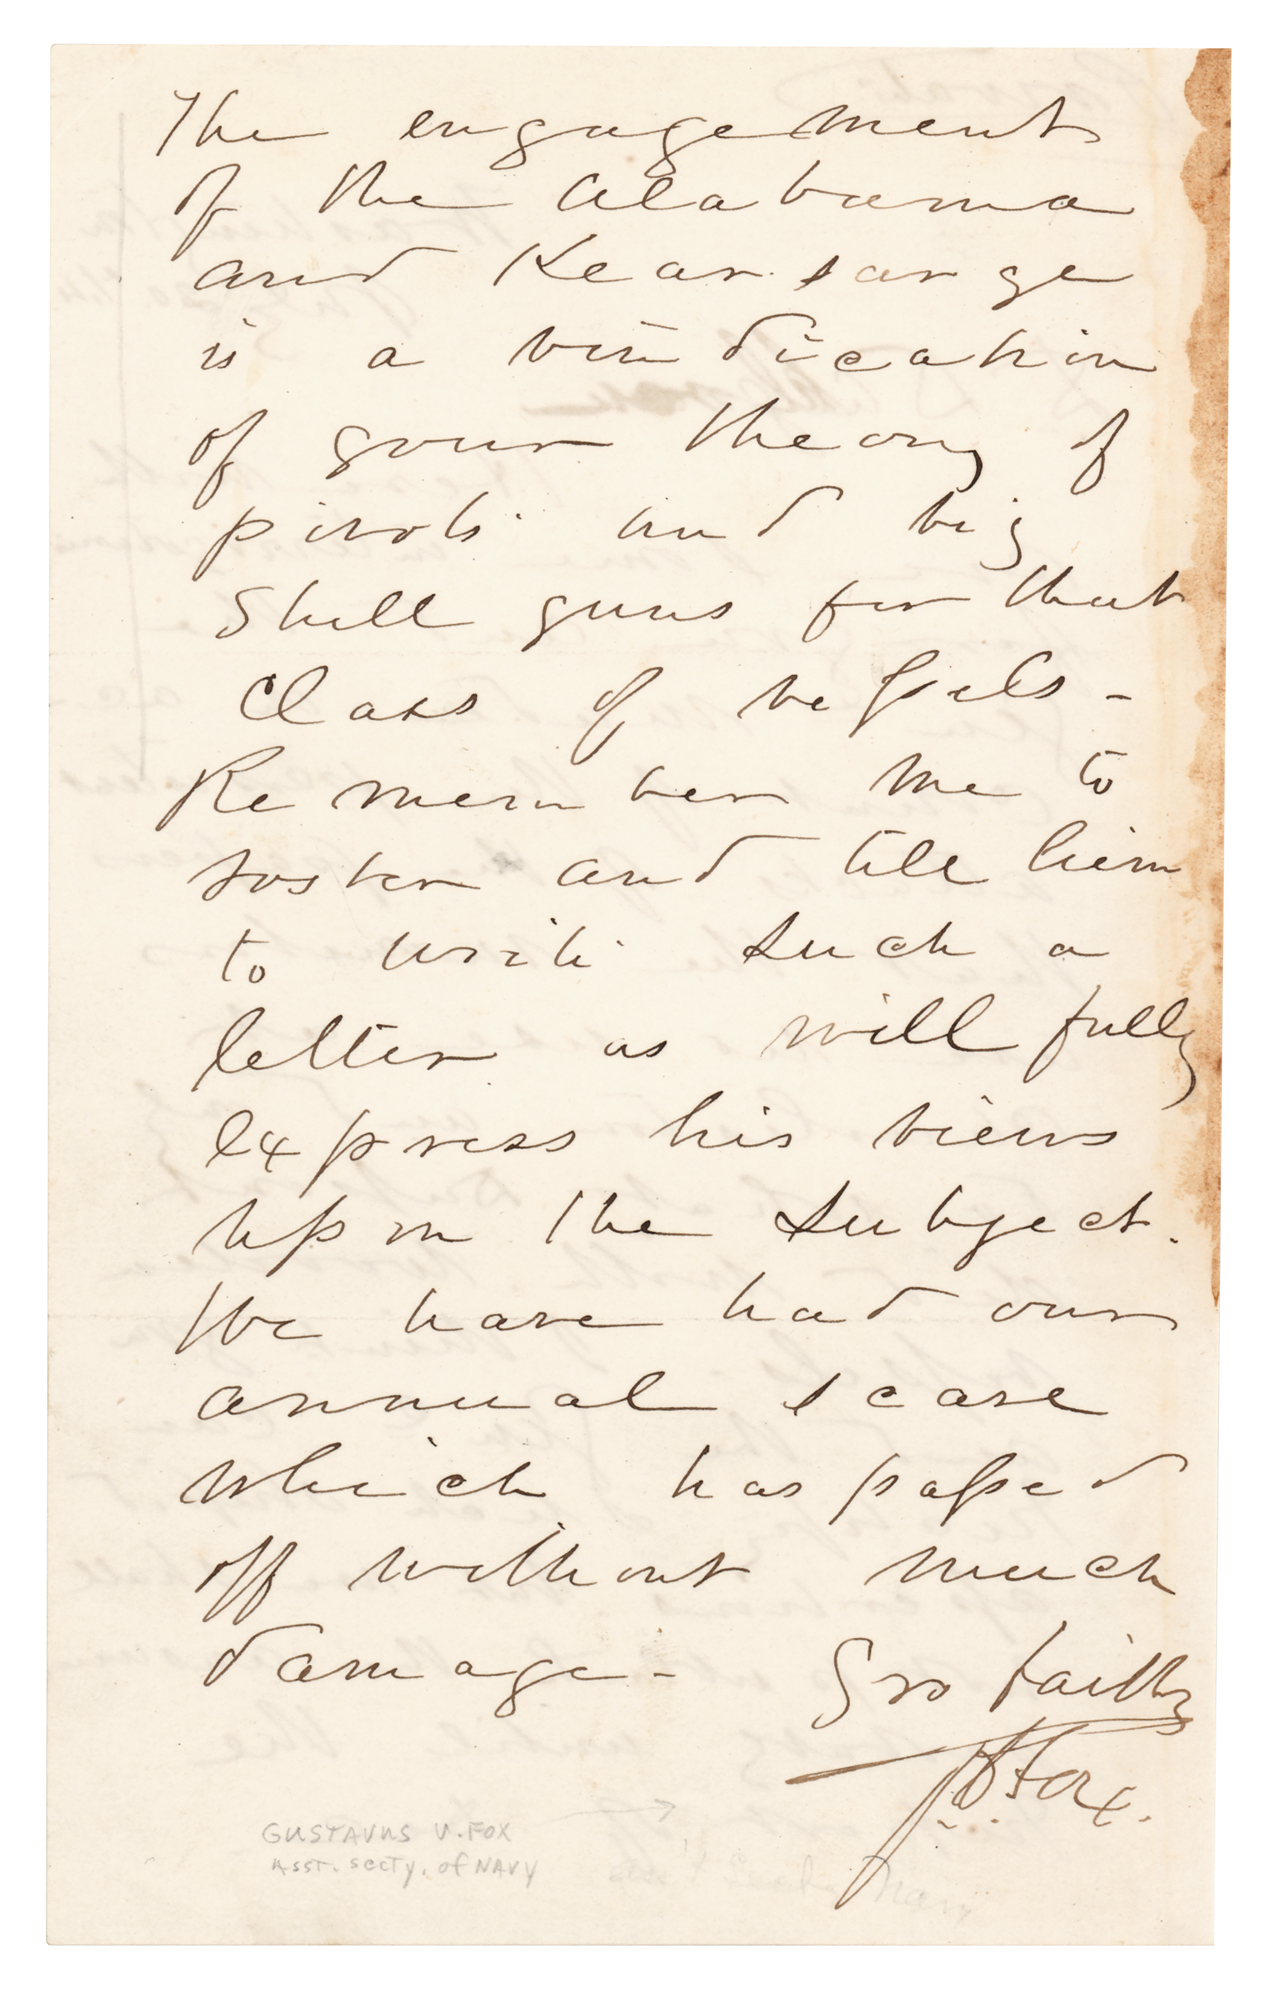 The engagement
of the Alabama
and Kearsarge
is a vindication
of your theory of
pivots and big
Shell guns for that
Class of vessels -
Remember me to
and tell him
to write such a
letter as will fully
express his views
upon the subject.
We have had our
annual scare
which has passed
off without much
damage -
Yrs faithly
G V Fox.
GUSTAVUS V. FOX
ASST. SECTY. of NAVY
Navy